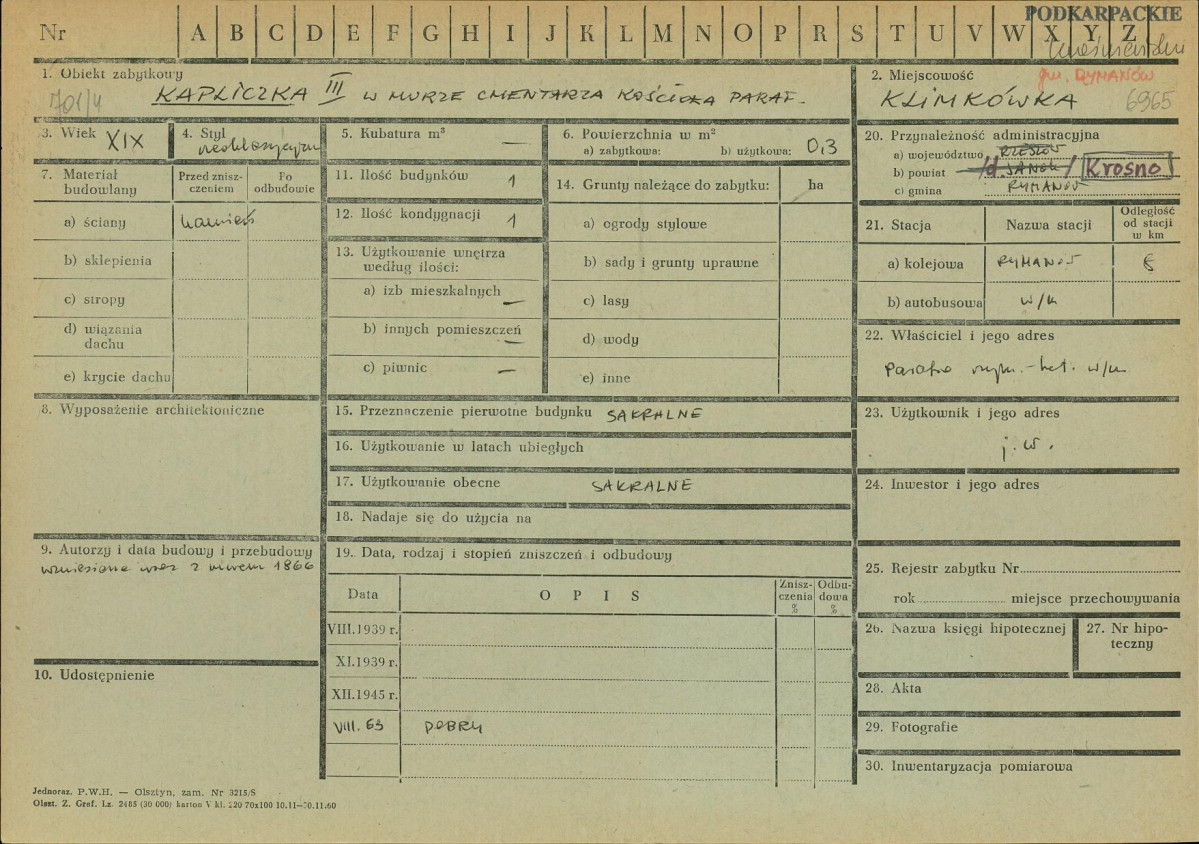 PODKARPACKIE
Nr A B C D E F G H I J K L M N O P R S T U V W X Y Z
1. Obiekt zabytkowy
701/4
KAPLICZKA III W MURZE CMENTARZA KOŚCIOŁA PARAF.
2. Miejscowość
gm. RYMANÓW
KLIMKÓWKA 6965
3. Wiek XIX
4. Styl
5. Kubatura m³ —
6. Powierzchnia w m²
a) zabytkowa: b) użytkowa: 0,3
20. Przynależność administracyjna
a) województwo RZESZÓW
b) powiat d. SANOK Krosno
c) gmina RYMANÓW
7. Materiał budowlany
Przed zniszczeniem
Po odbudowie
a) ściany kamień
b) sklepienia
c) stropy
d) wiązania dachu
e) krycie dachu
11. Ilość budynków 1
12. Ilość kondygnacji 1
13. Użytkowanie wnętrza według ilości:
a) izb mieszkalnych —
b) innych pomieszczeń —
c) piwnic —
14. Grunty należące do zabytku: ha
a) ogrody stylowe
b) sady i grunty uprawne
c) lasy
d) wody
e) inne
21. Stacja Nazwa stacji Odległość od stacji w km
a) kolejowa RYMANÓW
b) autobusowa w/m
22. Właściciel i jego adres
Parafia rzym.-kat. w/m
8. Wyposażenie architektoniczne
15. Przeznaczenie pierwotne budynku SAKRALNE
16. Użytkowanie w latach ubiegłych
17. Użytkowanie obecne SAKRALNE
18. Nadaje się do użycia na
23. Użytkownik i jego adres
j.w.
24. Inwestor i jego adres
9. Autorzy i data budowy i przebudowy
wzniesiona wraz z murem 1866
10. Udostępnienie
19. Data, rodzaj i stopień zniszczeń i odbudowy
Data OPIS Zniszczenia % Odbudowa %
VIII.1939 r.
XI.1939 r.
XII.1945 r.
VIII. 63 DOBRY
25. Rejestr zabytku Nr
rok miejsce przechowywania
26. Nazwa księgi hipotecznej
27. Nr hipoteczny
28. Akta
29. Fotografie
30. Inwentaryzacja pomiarowa
Jednoraz. P.W.H. — Olsztyn, zam. Nr 3215/S
Olszt. Z. Graf. Lz. 2485 (30 000) karton V kl. 220 70x100 10.11—30.11.60